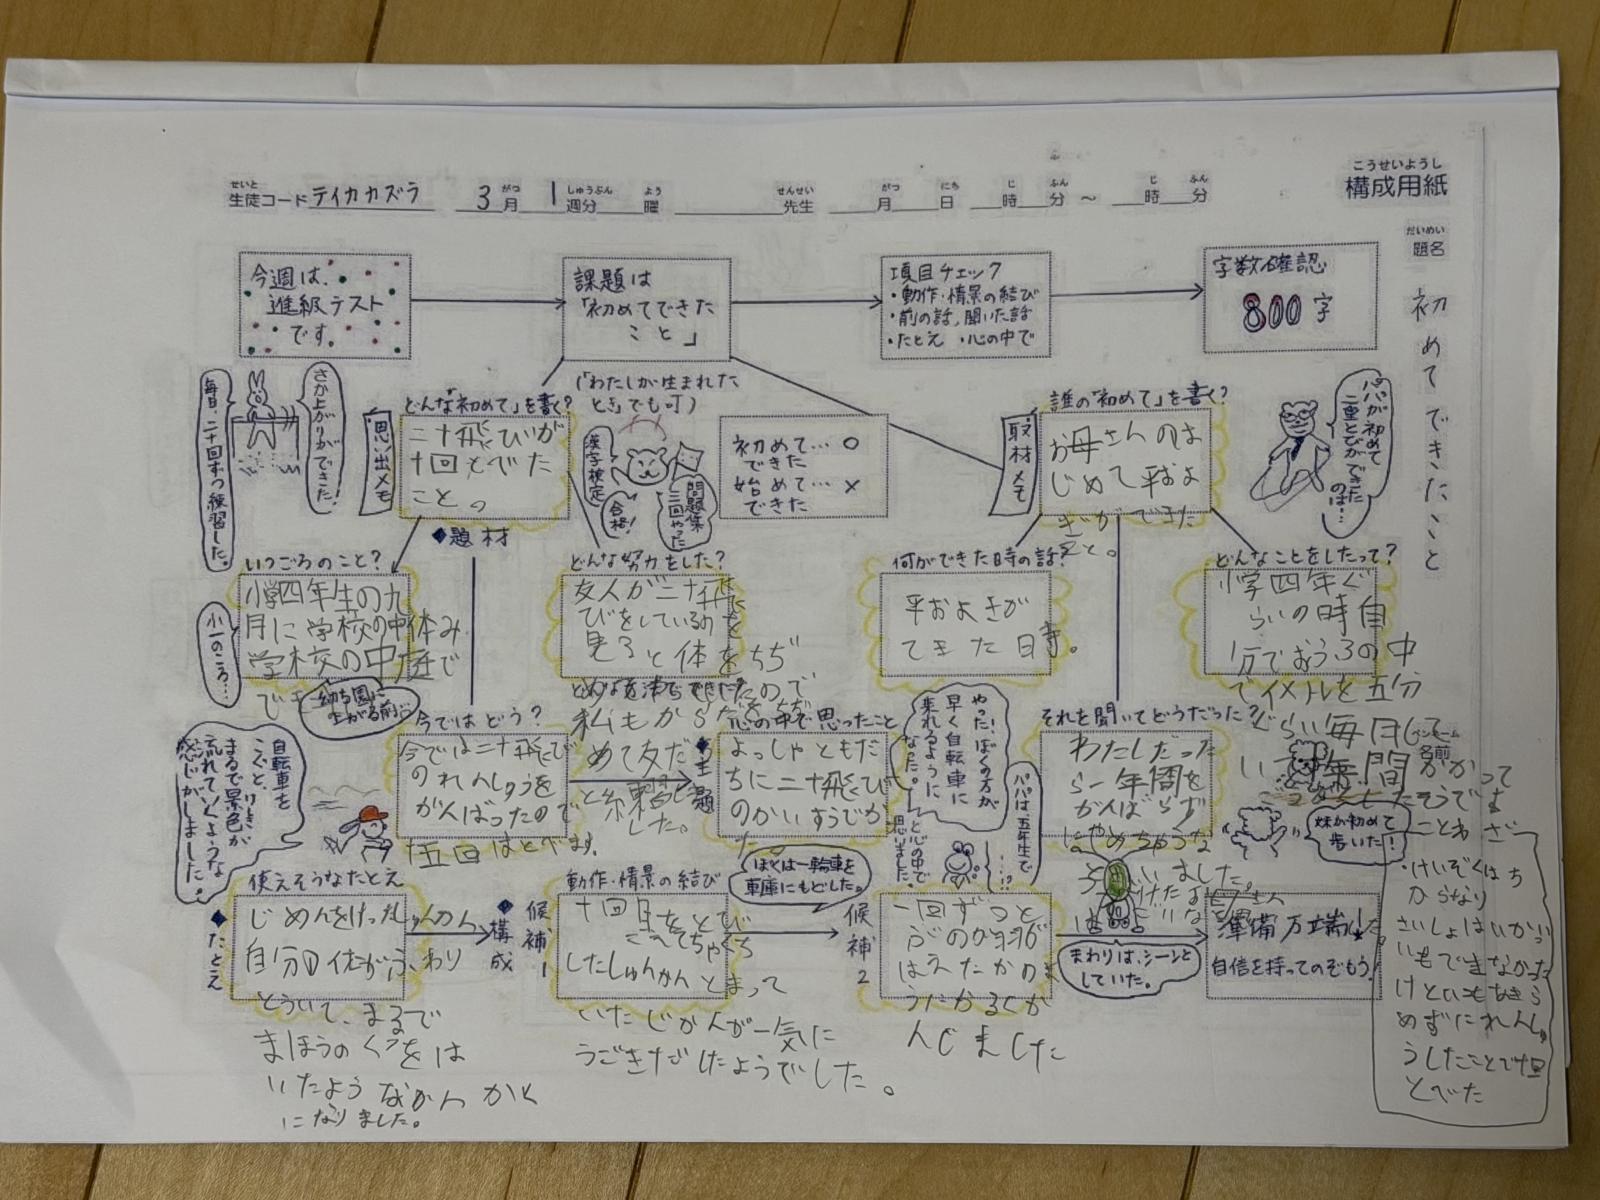 こうせいようし
構成用紙
せいと
生徒コード テイカカズラ
がつ しゅうぶん よう
3月 1週分 曜
せんせい
先生
がつ にち じ ふん じ ふん
月 日 時 分 ～ 時 分
だいめい
題名
初めてできたこと
今週は、
進級テスト
です。
課題は
「初めてできた
こと」
項目チェック
・動作・情景の結び
・前の話、聞いた話
・たとえ ・心の中で
字数確認
800字
(「わたしが生まれた
とき」でも可)
毎日、二十回ずつ練習した。
さか上がりができた！
思い出メモ
どんな「初めて」を書く？
二十飛びが
十回とべた
こと。
◆題材
漢字検定
合格！
問題集
三回やった
初めて… ○
できた
始めて… ×
できた
取材メモ
誰の「初めて」を書く？
お母さんのは
じめて平およ
ぎができた
こと。
パパが初めて
二重とびができた
のは…
いつごろのこと？
小学四年生の九
月に学校の中休み
学校の中庭で
小一のころ…
幼ち園に
上がる前に
どんな努力をした？
友人が二十飛
びをしているのを
見ると体を
私もから
めて友だ
と練習し
した。
何ができた時の話？
平およぎが
できた時。
どんなことをしたって？
小学四年ぐ
らいの時自
分でおうふろの中
でイメトレを五分
ぐらい毎日して
年間かかって
自転車を
こぐと、
まるで景色が
流れていくような
感じがしました。
今ではどう？
今では二十飛び
のれんしゅうを
がんばったので
十五回はとべます。
◆主題
心の中で思ったこと
よっしゃともだ
ちに二十飛び
のかいすうでか
た。
やった！ぼくの方が
早く自転車に
乗れるように
なった。
と心の中で
思いました。
パパは五年生で
…!?
それを聞いてどうだった？
わたしだった
ら一年間も
がんばらず
にやめちゃうな
妹が初めて
歩いた！
ぼくは一輪車を
車庫にもどした。
◆たとえ
使えそうなたとえ
じめんをけったしゅんかん
自分の体がふわり
とういて、まるで
まほうのくつをは
いたようなかんかく
になりました。
◆構成
候補1
動作・情景の結び
十回目をとび
こえてちゃくち
したしゅんかんとまって
いたじかんが一気に
うごきだしたようでした。
候補2
一回ずつと
ぶのが羽が
はえたかのよ
うにかるくか
んじました
まわりは、シーンと
していた。
準備万端！
自信を持ってのぞもう！
ことわざ
・けいぞくはち
からなり
さいしょは
いもできなかった
けどいもあきら
めずにれんしゅ
うしたことで
とべた